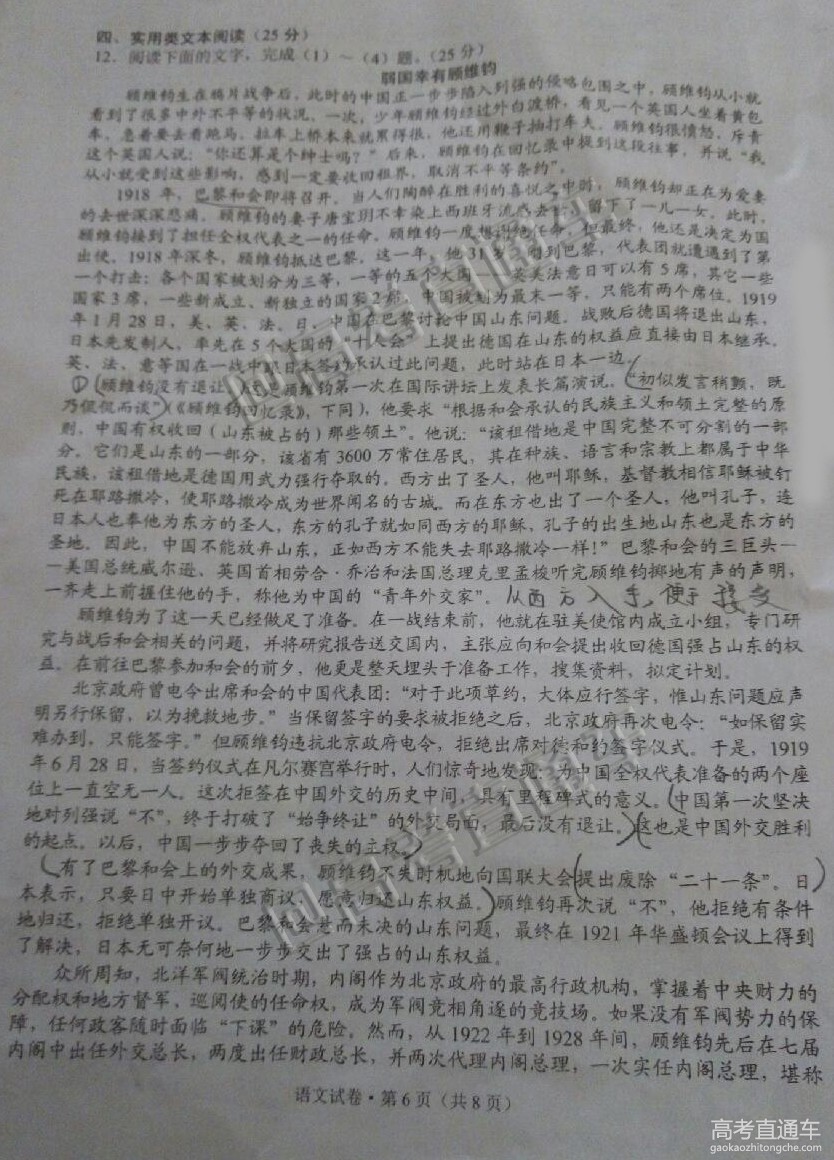 四、实用类文本阅读（25分）
12．阅读下面的文字，完成（1）～（4）题。（25分）
弱国幸有顾维钧
顾维钧生在鸦片战争后，此时的中国正一步步陷入到强的侵略包围之中，顾维钧从小就
看到了很多中外不平等的状况。一次，少年顾维钧经过外白渡桥，看见一个英国人坐着黄包
车，急着要去看跑马。拉车上桥本来就累得很，他还用鞭子抽打车夫。顾维钧很愤怒，斥责
这个英国人说：“你还算是个绅士吗？”后来，顾维钧在回忆录中提到这段往事，并说“我
从小就受到这些影响，感到一定要收回租界，取消不平等条约”。
1918 年，巴黎和会即将召开。当人们陶醉在胜利的喜悦之中时，顾维钧却正在为爱妻
的去世深深悲痛。顾维钧的妻子唐宝玥不幸染上西班牙流感去世，留下了一儿一女。此时，
顾维钧接到了担任全权代表之一的任命。顾维钧一度想谢绝任命，但最终，他还是决定为国
出使。1918 年深冬，顾维钧抵达巴黎。这一年，他 31 岁。刚到巴黎，代表团就遭遇到了第
一个打击：各个国家被划分为三等，一等的五个大国——英美法意日可以有 5 席，其它一些
国家 3 席，一些新成立、新独立的国家 2 席，中国被划为最末一等，只能有两个席位。1919
年 1 月 28 日，美、英、法、日、中国在巴黎讨论中国山东问题。战败后德国将退出山东，
日本先发制人，率先在 5 个大国的“十人会”上提出德国在山东的权益应直接由日本继承。
英、法、意等国在一战中即日本签约承认过此问题，此时站在日本一边。
①（顾维钧没有退让，这是顾维钧第一次在国际讲坛上发表长篇演说，“初似发言稍颤，既
乃侃侃而谈”）（《顾维钧回忆录》，下同），他要求“根据和会承认的民族主义和领土完整的原
则，中国有权收回（山东被占的）那些领土”。他说：“该租借地是中国完整不可分割的一部
分。它们是山东的一部分，该省有 3600 万常住居民，其在种族、语言和宗教上都属于中华
民族，该租借地是德国用武力强行夺取的。西方出了圣人，他叫耶稣，基督教相信耶稣被钉
死在耶路撒冷，使耶路撒冷成为世界闻名的古城。而在东方也出了一个圣人，他叫孔子，连
日本人也奉他为东方的圣人，东方的孔子就如同西方的耶稣，孔子的出生地山东也是东方的
圣地。因此，中国不能放弃山东，正如西方不能失去耶路撒冷一样！”巴黎和会的三巨头—
—美国总统威尔逊、英国首相劳合·乔治和法国总理克里孟梭听完顾维钧掷地有声的声明，
一齐走上前握住他的手，称他为中国的“青年外交家”。从西方入手，便于接受
顾维钧为了这一天已经做足了准备。在一战结束前，他就在驻美使馆内成立小组，专门研
究与战后和会相关的问题，并将研究报告送交国内，主张应向和会提出收回德国强占山东的权
益。在前往巴黎参加和会的前夕，他更是整天埋头于准备工作，搜集资料，拟定计划。
北京政府曾电令出席和会的中国代表团：“对于此项草约，大体应行签字，惟山东问题应声
明另行保留，以为挽救地步。”当保留签字的要求被拒绝之后，北京政府再次电令：“如保留实
难办到，只能签字。”但顾维钧违抗北京政府电令，拒绝出席对德和约签字仪式。于是，1919
年 6 月 28 日，当签约仪式在凡尔赛宫举行时，人们惊奇地发现：为中国全权代表准备的两个座
位上一直空无一人。这次拒签在中国外交的历史中间，具有里程碑式的意义。（中国第一次坚决
地对列强说“不”，终于打破了“始争终让”的外交局面，最后没有退让。）（这也是中国外交胜利
的起点。以后，中国一步步夺回了丧失的主权。）
（有了巴黎和会上的外交成果，顾维钧不失时机地向国联大会（提出废除“二十一条”。日）
本表示，只要日中开始单独商议，愿意归还山东权益。）顾维钧再次说“不”，他拒绝有条件
地归还，拒绝单独开议。巴黎和会悬而未决的山东问题，最终在 1921 年华盛顿会议上得到
了解决，日本无可奈何地一步步交出了强占的山东权益。
众所周知，北洋军阀统治时期，内阁作为北京政府的最高行政机构，掌握着中央财力的
分配权和地方督军、巡阅使的任命权，成为军阀竞相角逐的竞技场。如果没有军阀势力的保
障，任何政客随时面临“下课”的危险。然而，从 1922 年到 1928 年间，顾维钧先后在七届
内阁中出任外交总长，两度出任财政总长，并两次代理内阁总理，一次实任内阁总理，堪称
语文试卷·第 6 页（共 8 页）
高考直通车
gaokaozhitongche.com